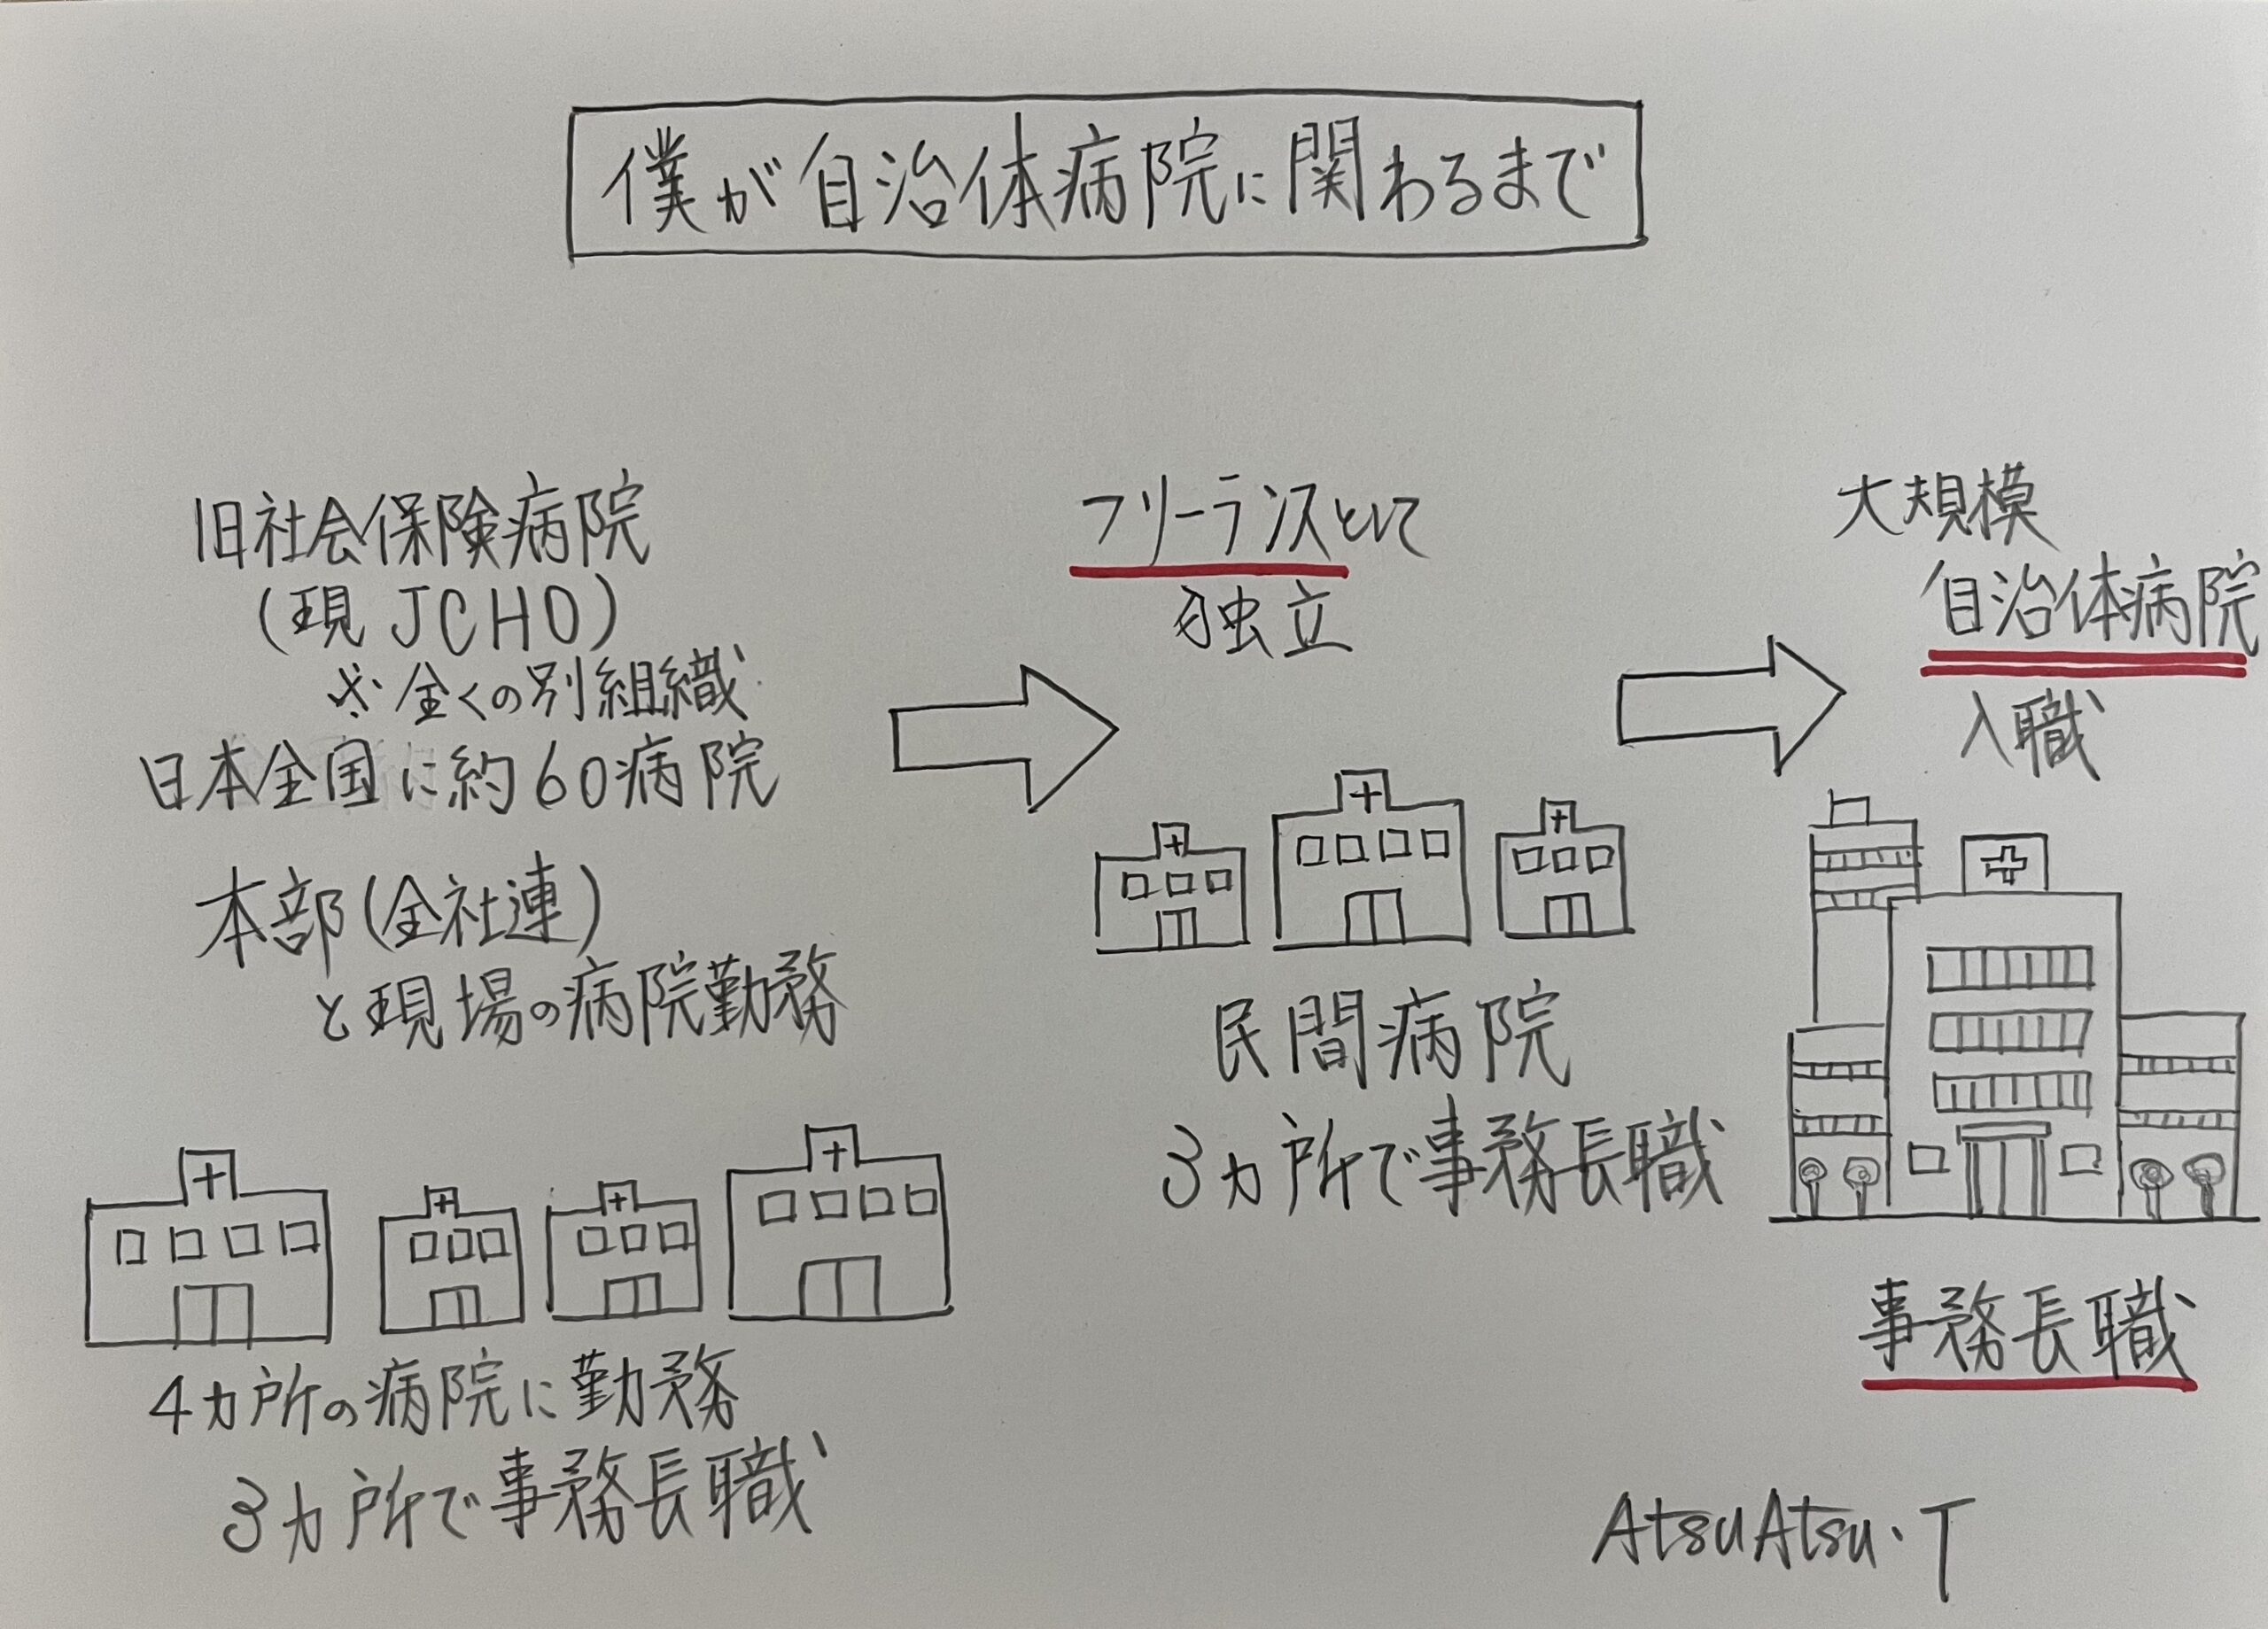 僕が自治体病院に関わるまで
旧社会保険病院
(現JCHO)
※全くの別組織
日本全国に約60病院
本部(全社連)
と現場の病院勤務
4カ所の病院に勤務
3カ所で事務長職
フリーランスとして
独立
民間病院
3カ所で事務長職
大規模
自治体病院
入職
事務長職
AtsuAtsu.T